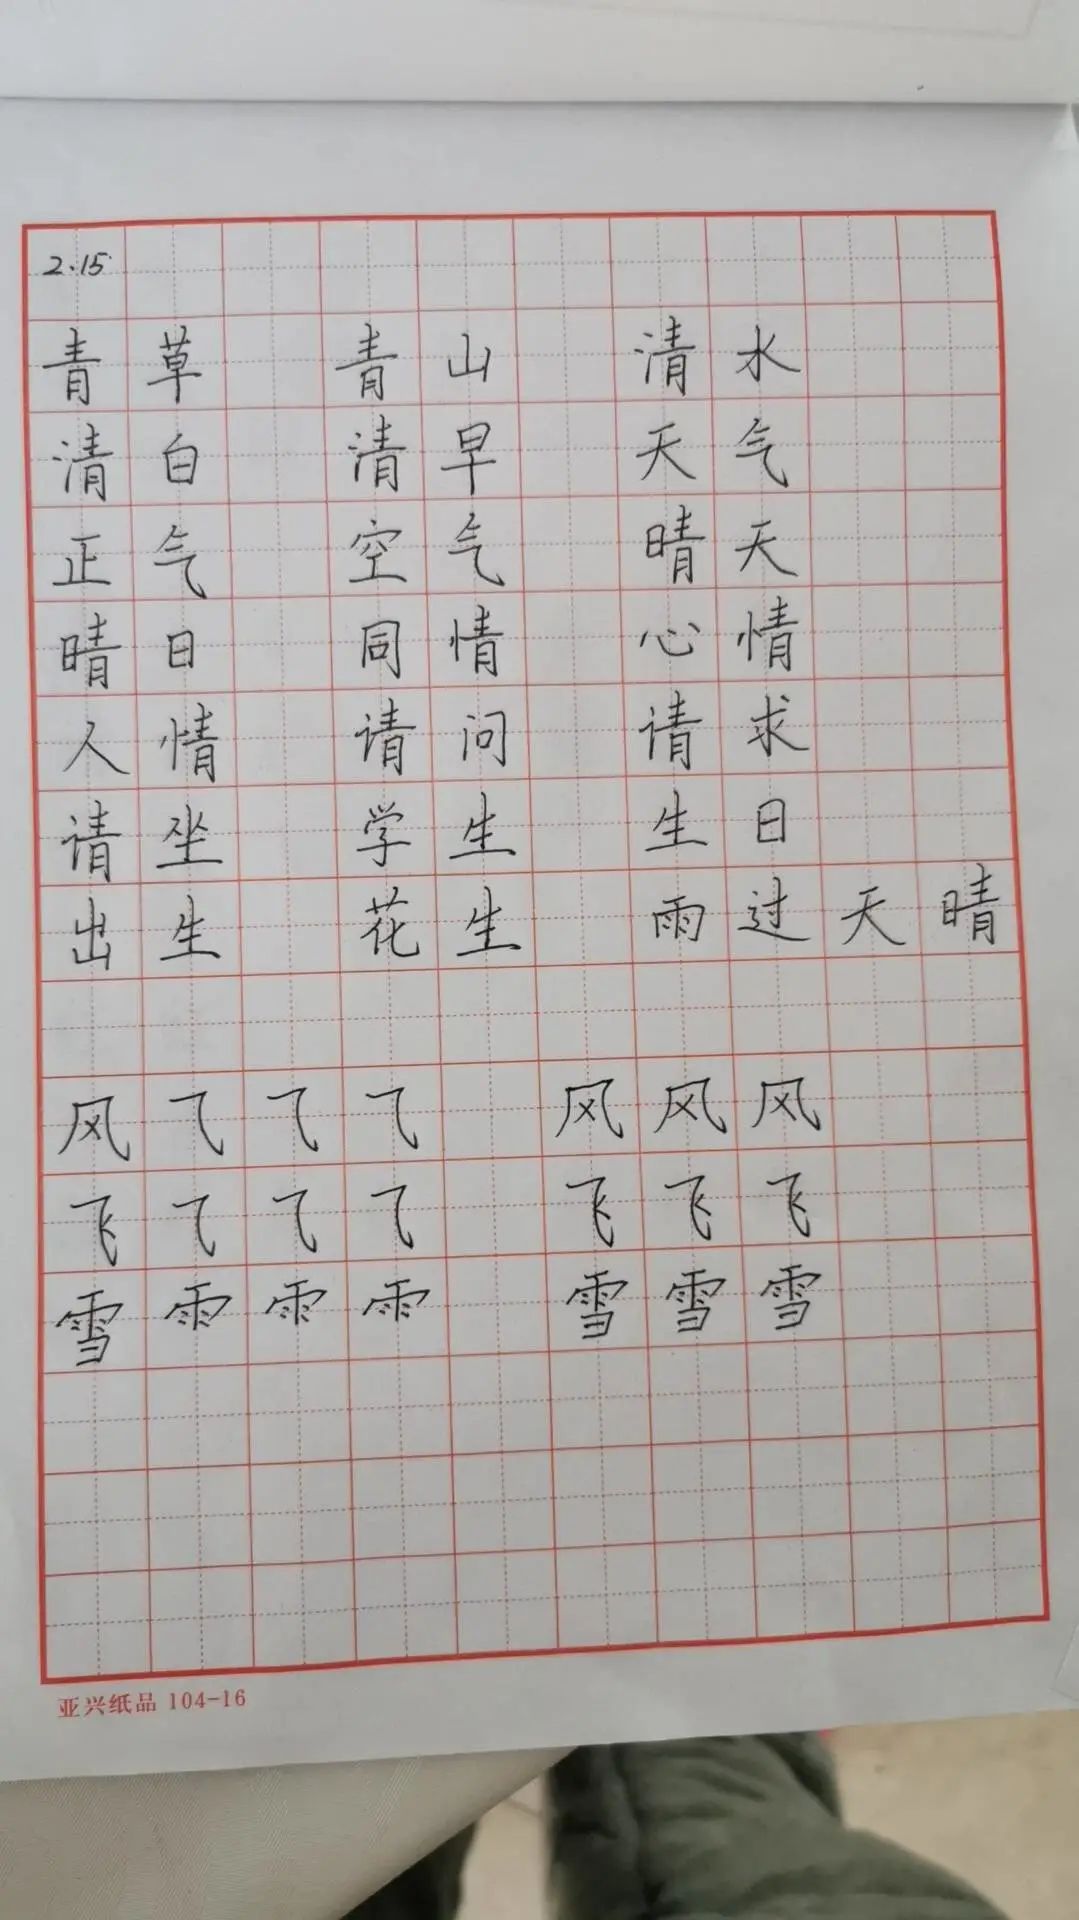 2.15
青草 青山 清水
清白 清早 天气
正气 空气 晴天
晴日 同情 心情
人情 请问 请求
请坐 学生 生日
出生 花生 雨过天晴
风⺄⺄⺄ 风风风
飞⺄⺄⺄ 飞飞飞
雪⻗⻗⻗ 雪雪雪
亚兴纸品 104-16